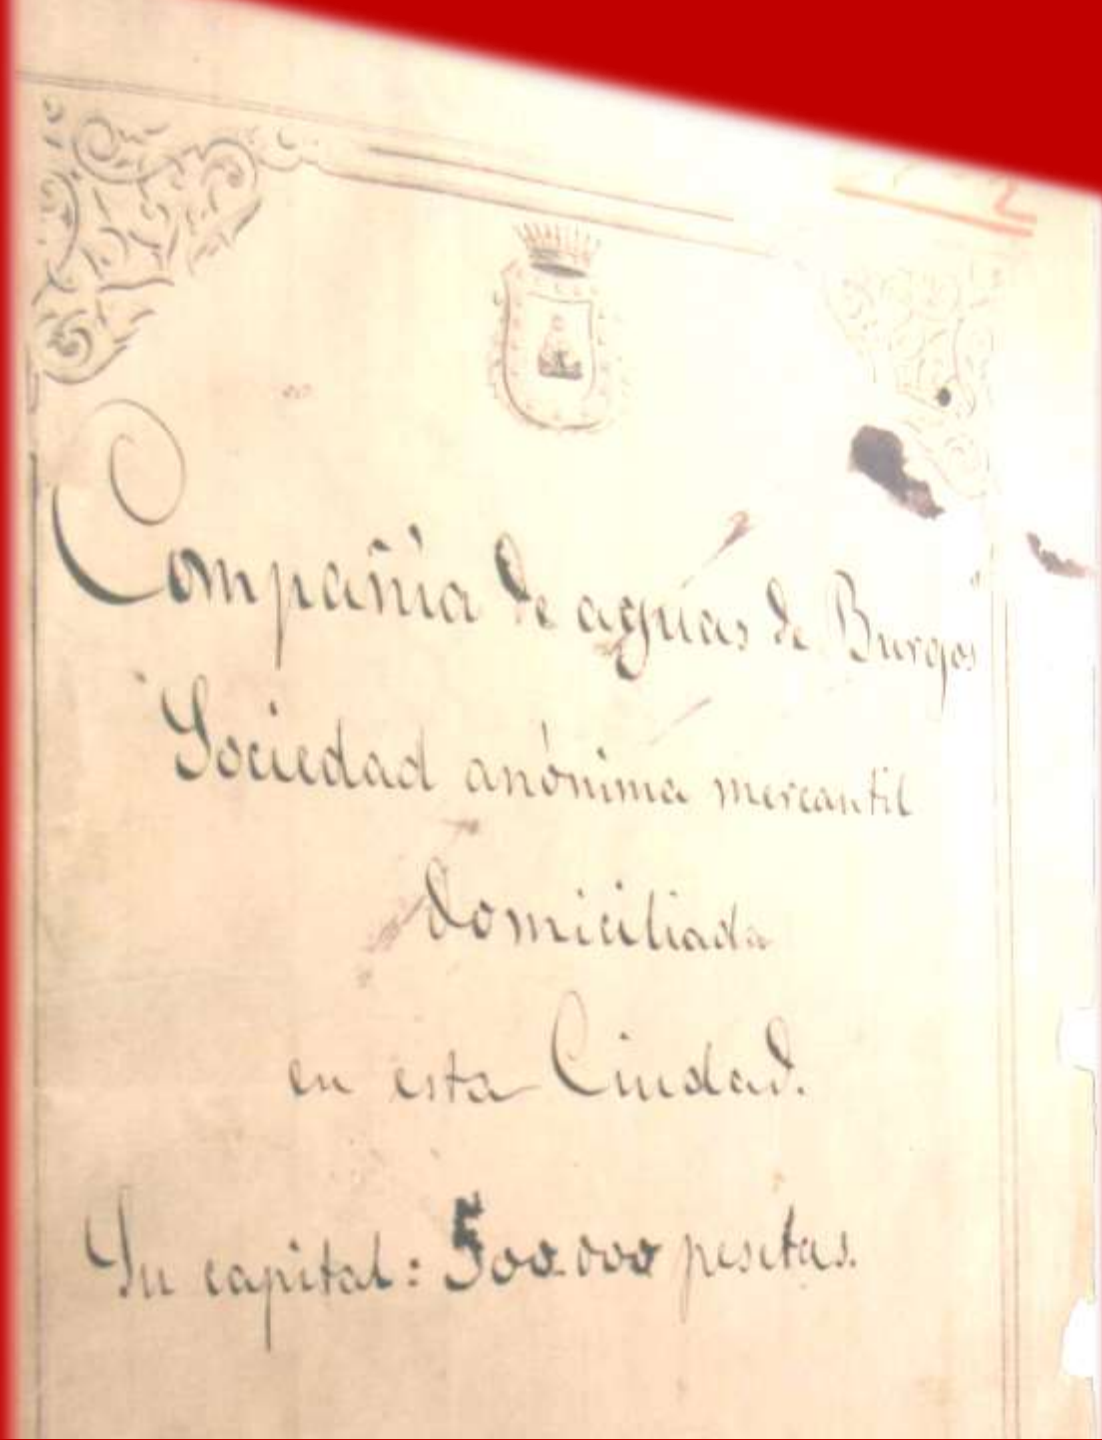 2
Compañía de aguas de Burgos"
"Sociedad anónima mercantil
domiciliada
en esta Ciudad.
Su capital: 500.000 pesetas.